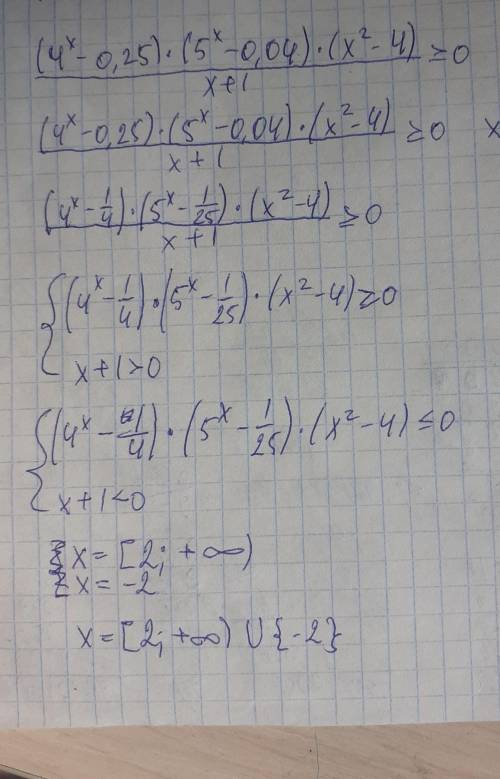 (4^x - 0,25) · (5^x - 0,04) · (x² - 4) / x+1 ≥ 0
(4^x - 0,25) · (5^x - 0,04) · (x² - 4) / x + 1 ≥ 0 x
(4^x - 1/4) · (5^x - 1/25) · (x² - 4) / x + 1 ≥ 0
{ (4^x - 1/4) · (5^x - 1/25) · (x² - 4) ≥ 0
x + 1 > 0
{ (4^x - 1/4) · (5^x - 1/25) · (x² - 4) ≤ 0
x + 1 < 0
x = [2; +∞)
x = -2
x = [2; +∞) U {-2}